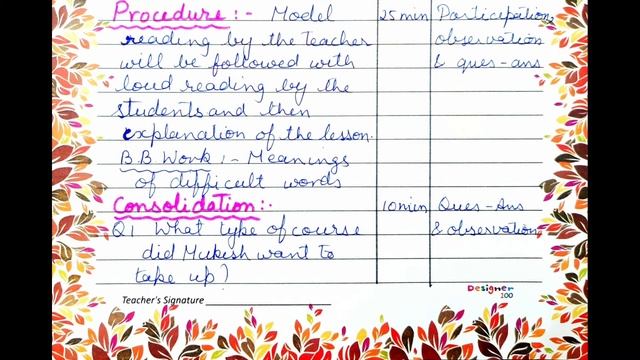 Procedure:- Model 25 min Participation,
reading by the Teacher observation
will be followed with & ques-ans
loud reading by the
students and then
explanation of the lesson.
B.B Work:- Meanings
of difficult words
Consolidation:- 10 min Ques-Ans
Q1 What type of course & observation
did Mukesh want to
take up?
Designer
100
Teacher's Signature